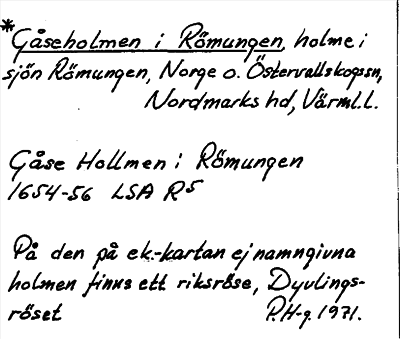 *Gåseholmen i Römungen, holme i
sjön Römungen, Norge o. Östervallskogssn,
Nordmarks hd, Värml.l.
Gåse Hollmen i Römungen
1654-56 LSA R5
På den på ek.-kartan ej namngivna
holmen finns ett riksröse, Dyvlings-
röset P.H-g. 1971.